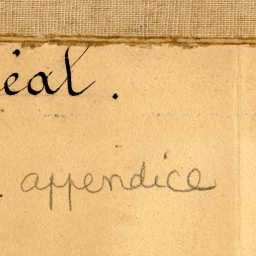 éal.
appendice